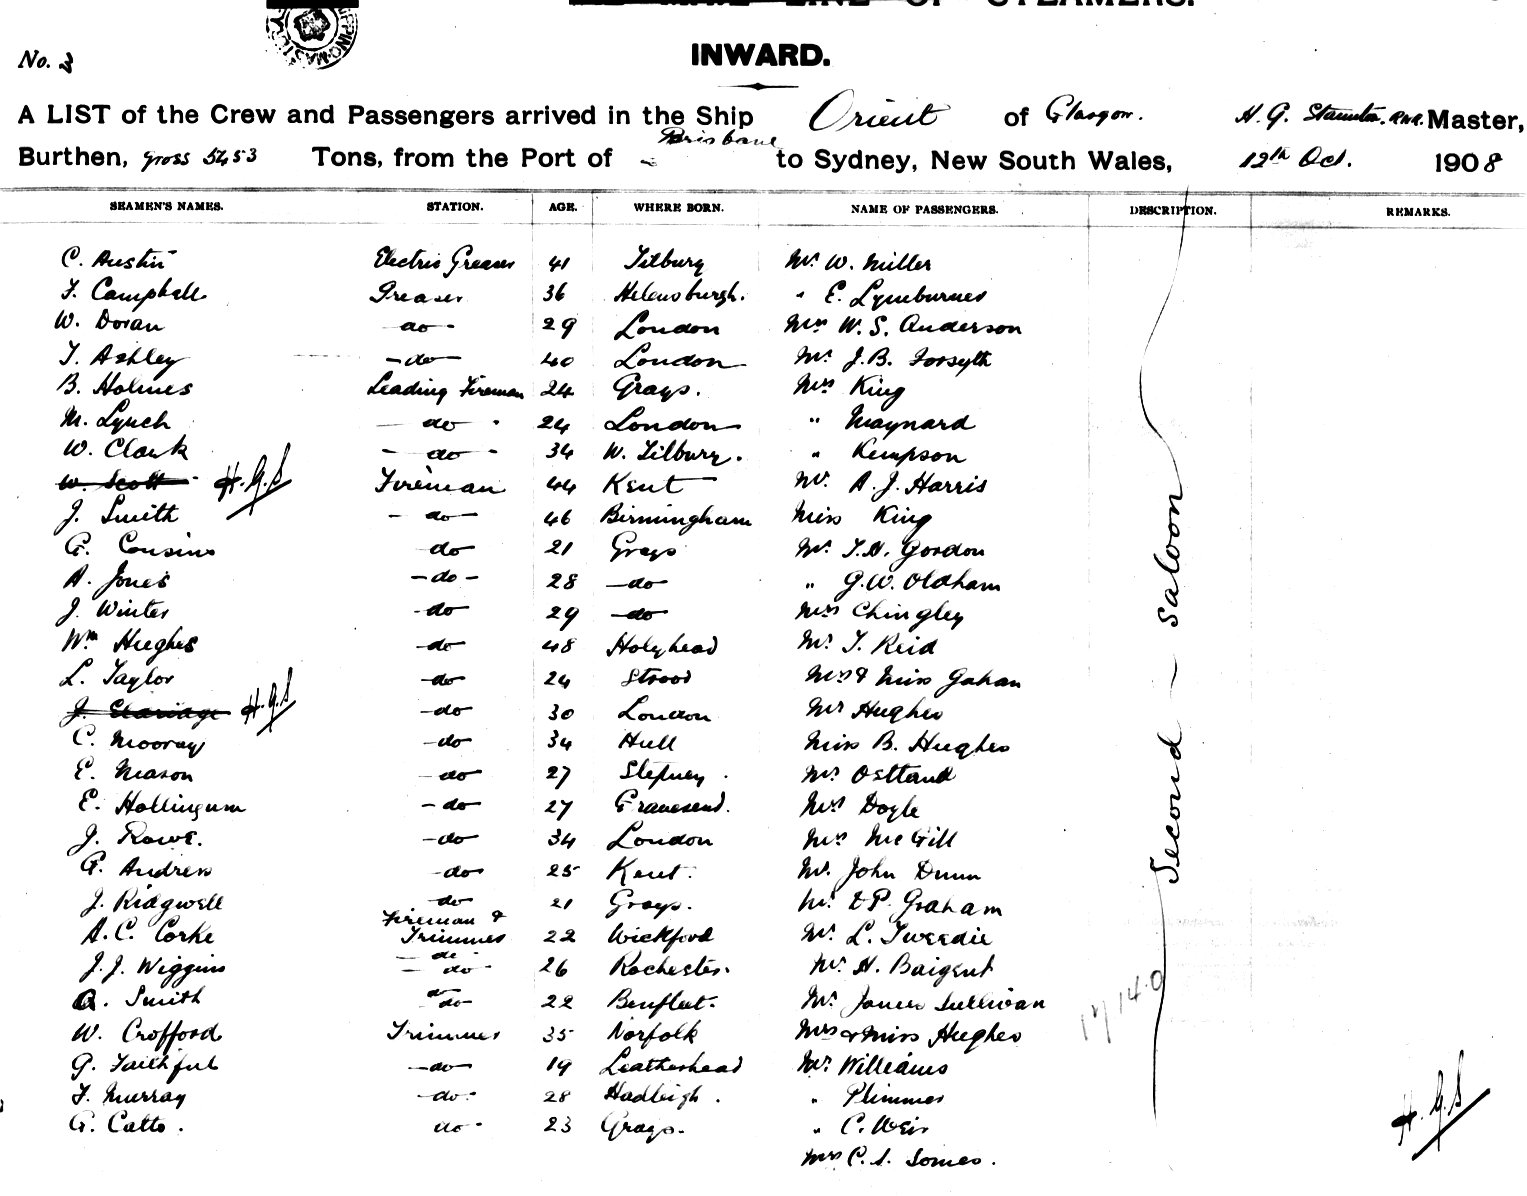 LINE OF STEAMERS.
No. 3
INWARD.
A LIST of the Crew and Passengers arrived in the Ship Orient of Glasgow. H. G. Staunton. RNR. Master,
Burthen, gross 5453 Tons, from the Port of Brisbane to Sydney, New South Wales, 12th Oct. 1908
SEAMEN'S NAMES. STATION. AGE. WHERE BORN. NAME OF PASSENGERS. DESCRIPTION. REMARKS.
C. Austin Electric Greaser 41 Tilbury Mr. W. Miller
F. Campbell. Greaser 36 Helensburgh. " E. Lymburner
W. Doran do - 29 London Mrs W. S. Anderson
T. Ashley - do - 40 London Mr. J. B. Forsyth
B. Holmes Leading Fireman 24 Grays. Mrs King
M. Lynch - do - 24 London " Maynard
W. Clark - do - 34 W. Tilbury. " Kempson
W. Scott H.G.S Fireman 44 Kent Mr. A. J. Harris
J. Smith - do - 46 Birmingham Miss King
G. Cousins do 21 Grays Mr. T. H. Gordon
A. Jones - do - 28 - do " G. W. Oldham
J. Winter - do 29 - do Mrs Chingley
Wm Hughes - do 48 Holyhead Mr. T. Reid
L. Taylor - do 24 Strood Mrs & Miss Gahan
J. H.G.S - do 30 London Mr Hughes
C. Mooray - do 34 Hull Miss B. Hughes
E. Mason - do 27 Stepney. Mr.
E. Hollingum - do 27 Gravesend. Mrs Doyle
J. Rowe. - do 34 London Mrs McGill
G. Andrews - do 25 Kent. Mr. John Dunn
J. Ridgwell - do 21 Grays. Mr. & P. Graham
A. C. Corke Fireman & Trimmer 22 Wickford Mr. L. Tweedie
J. J. Wiggins - do - 26 Rochester. Mr. H. Baigent
A. Smith do 22 Benfleet. Mr. James Sullivan
W. Crofford Trimmer 35 Norfolk Mrs & Miss Hughes
G. Faithful - do - 19 Leatherhead Mr. Williams
F. Murray - do - 28 Hadleigh. " Plimmer
G. Catto. do - 23 Grays. " C. Weir
Mrs C. S. Somes.
Second - Saloon
H.G.S